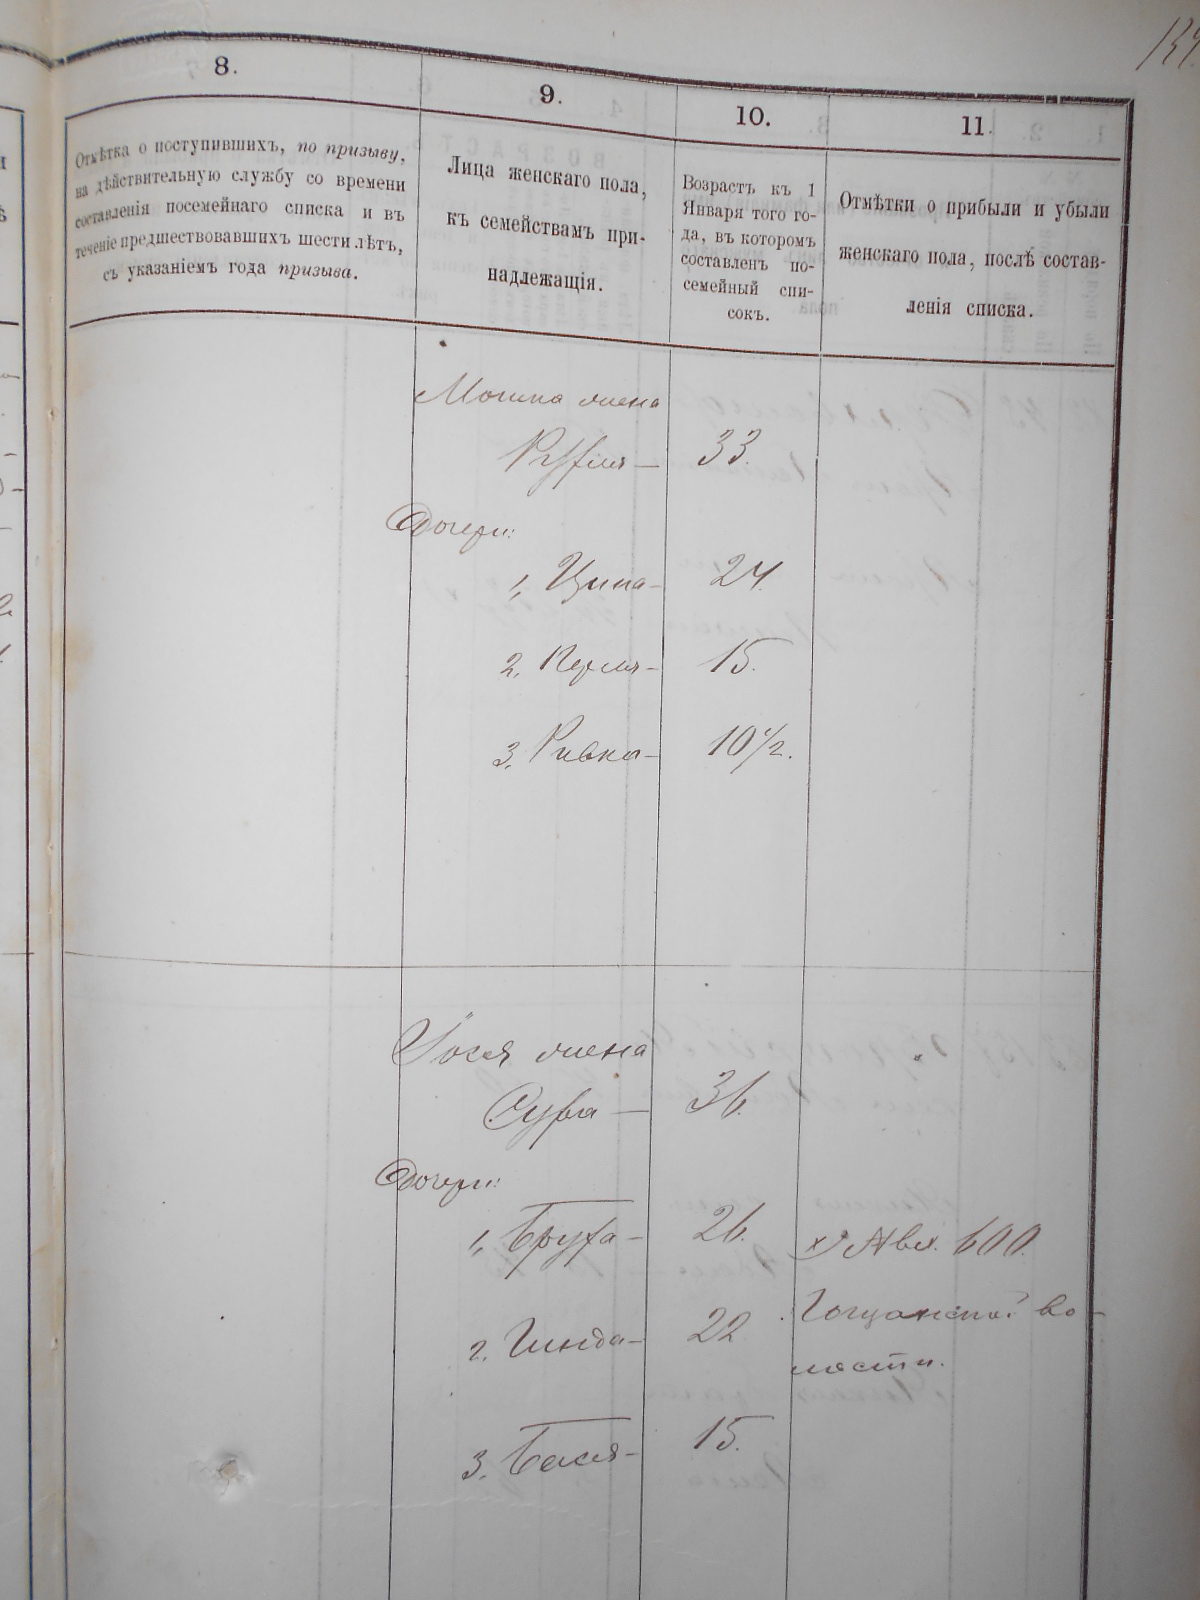 8.
Отмѣтка о поступившихъ, по призыву,
на дѣйствительную службу со времени
составленія посемейнаго списка и въ
теченіе предшествовавшихъ шести лѣтъ,
съ указаніемъ года призыва.
9.
Лица женскаго пола,
къ семействамъ при-
надлежащія.
10.
Возрастъ къ 1
Января того го-
да, въ которомъ
составленъ по-
семейный спи-
сокъ.
11.
Отмѣтки о прибыли и убыли
женскаго пола, послѣ состав-
ленія списка.
Мошка жена
33.
Дочери:
1, Ципа — 24.
2. Перля — 15.
3. Ривка — 10 1/2.
Іося жена
Сура — 36.
Дочери:
1, Бруха — 26.
600.
2. Гинда — 22
Гощанской во-
лости.
3. Бася — 15.